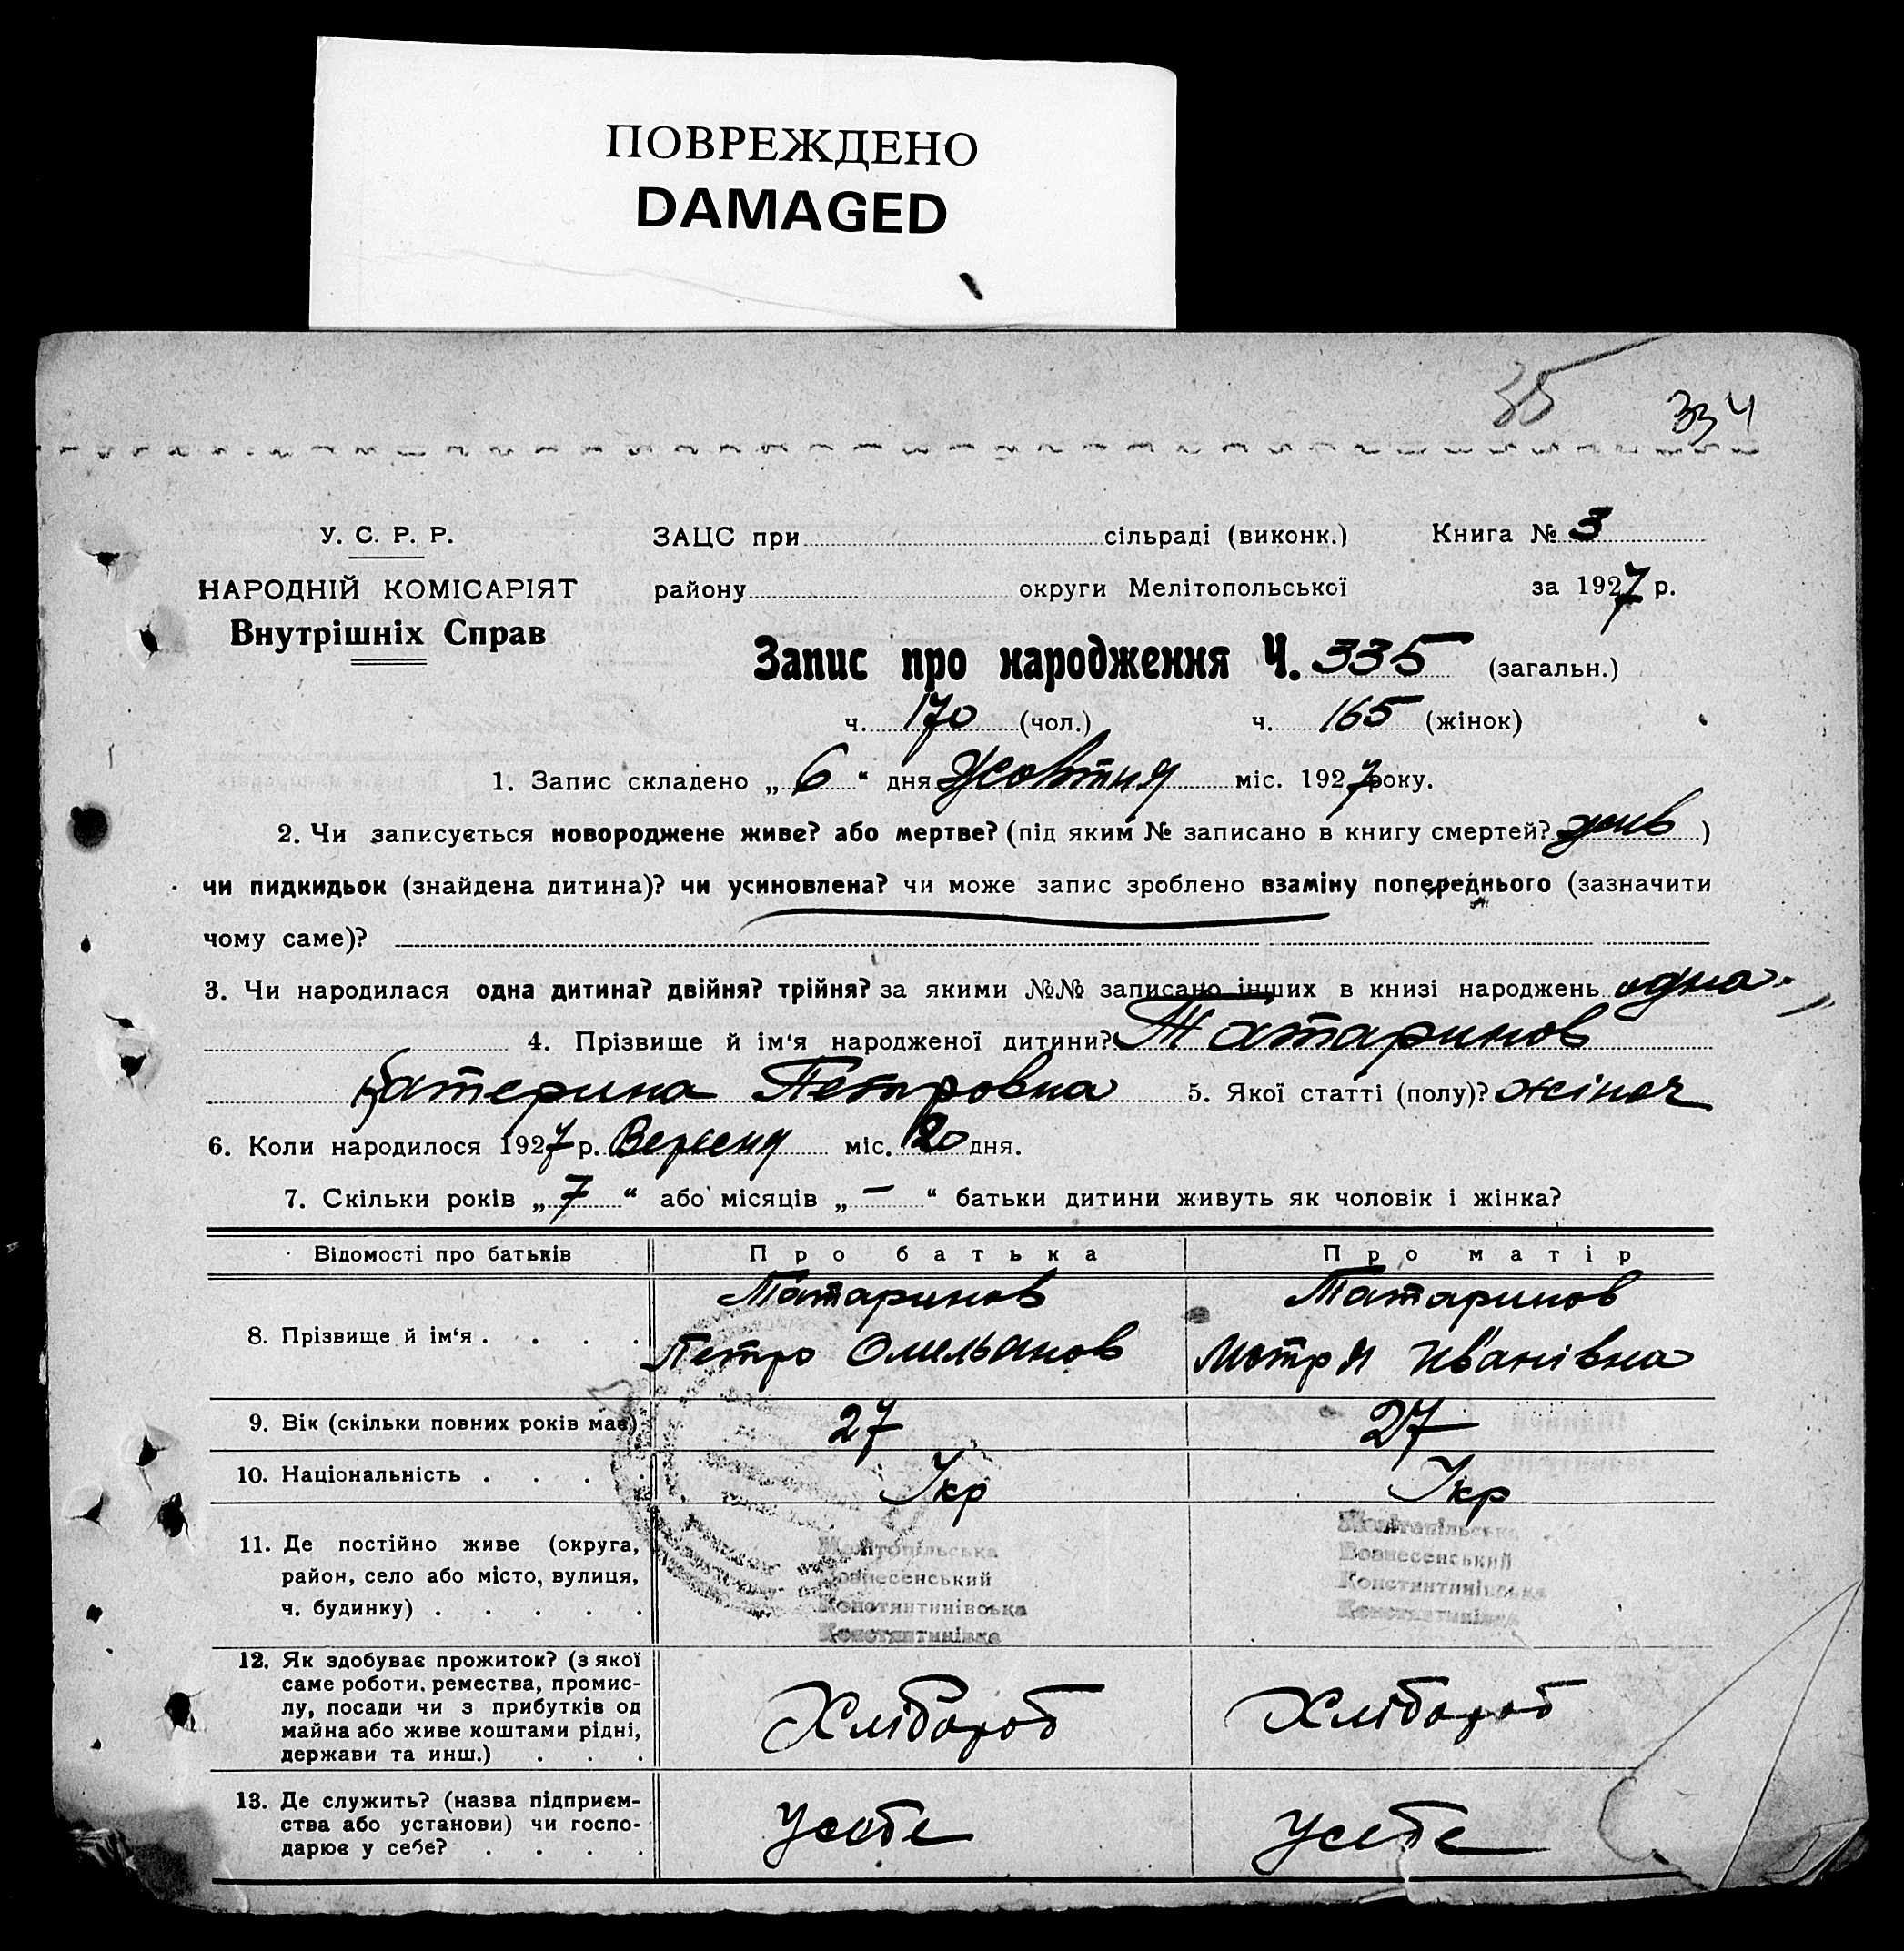 ПОВРЕЖДЕНО
DAMAGED
35
334
У. С. Р. Р.
ЗАЦС при сільраді (виконк.) Книга № 3
НАРОДНІЙ КОМІСАРІЯТ
району округи Мелітопольської за 1927 р.
Внутрішніх Справ
Запис про народження Ч. 335 (загальн.)
ч. 170 (чол.) ч. 165 (жінок)
1. Запис складено „ 6 “ дня Жовтня міс. 1927 року.
2. Чи записується новороджене живе? або мертве? (під яким № записано в книгу смертей? жив )
чи пидкидьок (знайдена дитина)? чи усиновлена? чи може запис зроблено взаміну попереднього (зазначити
чому саме)?
3. Чи народилася одна дитина? двійня? трійня? за якими №№ записано інших в книзі народжень одна
4. Прізвище й ім‘я народженої дитини? Татаринов
Катерина Петровна 5. Якої статті (полу)? жіноч
6. Коли народилося 1927 р. Вересня міс. 20 дня.
7. Скільки років „ 7 “ або місяців „ — “ батьки дитини живуть як чоловік і жінка?
Відомості про батьків Про батька Про матір
Татаринов Татаринов
8. Прізвище й ім‘я . . . .
Петро Омельянов Мотря Иванівна
9. Вік (скільки повних років має) 27 27
10. Національність . . . . Укр Укр
11. Де постійно живе (округа,
район, село або місто, вулиця,
ч. будинку) . . . . .
Мелітопільська
Вознесенський
Константинівська
Константинівка
Мелітопільська
Вознесенський
Константинівська
Константинівка
12. Як здобуває прожиток? (з якої
саме роботи, ремества, промис-
лу, посади чи з прибутків од
майна або живе коштами рідні,
держави та инш.) . . .
Хлібороб Хлібороб
13. Де служить? (назва підприєм-
ства або установи) чи госпо-
дарює у себе? . . . .
Усебе Усебе